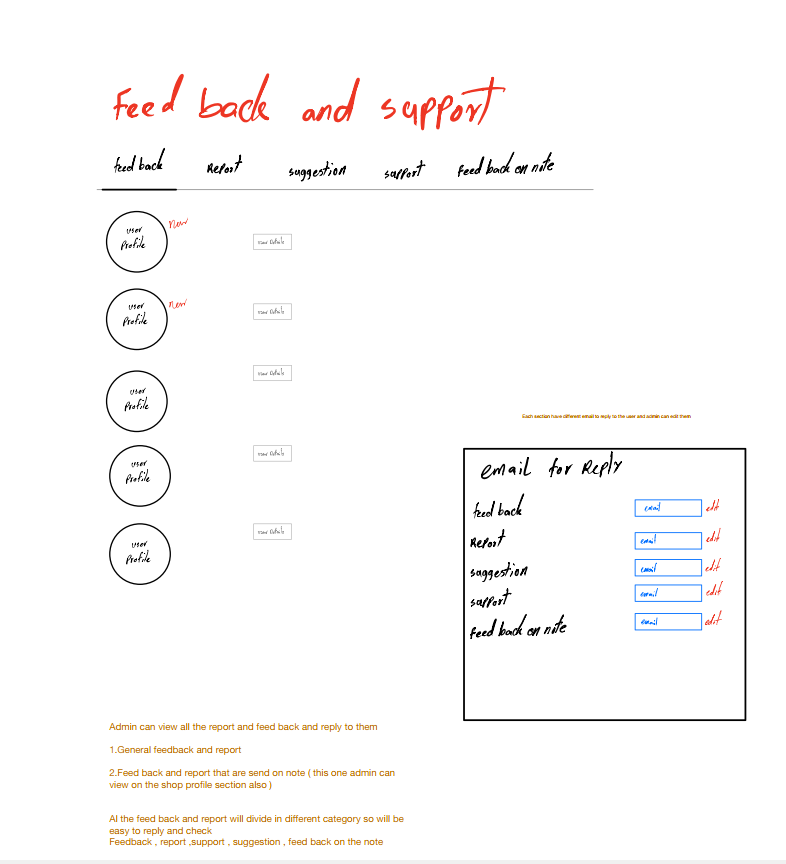 Feed back and support
feed back Report suggestion support Feed back on note
user
Profile
new
view details
user
Profile
new
view details
user
Profile
view details
user
Profile
view details
user
Profile
view details
Each section have different email to reply to the user and admin can edit them
email for Reply
feed back email edit
Report email edit
suggestion email edit
support email edit
Feed back on note email edit
Admin can view all the report and feed back and reply to them
1.General feedback and report
2.Feed back and report that are send on note ( this one admin can
view on the shop profile section also )
Al the feed back and report will divide in different category so will be
easy to reply and check
Feedback , report ,support , suggestion , feed back on the note